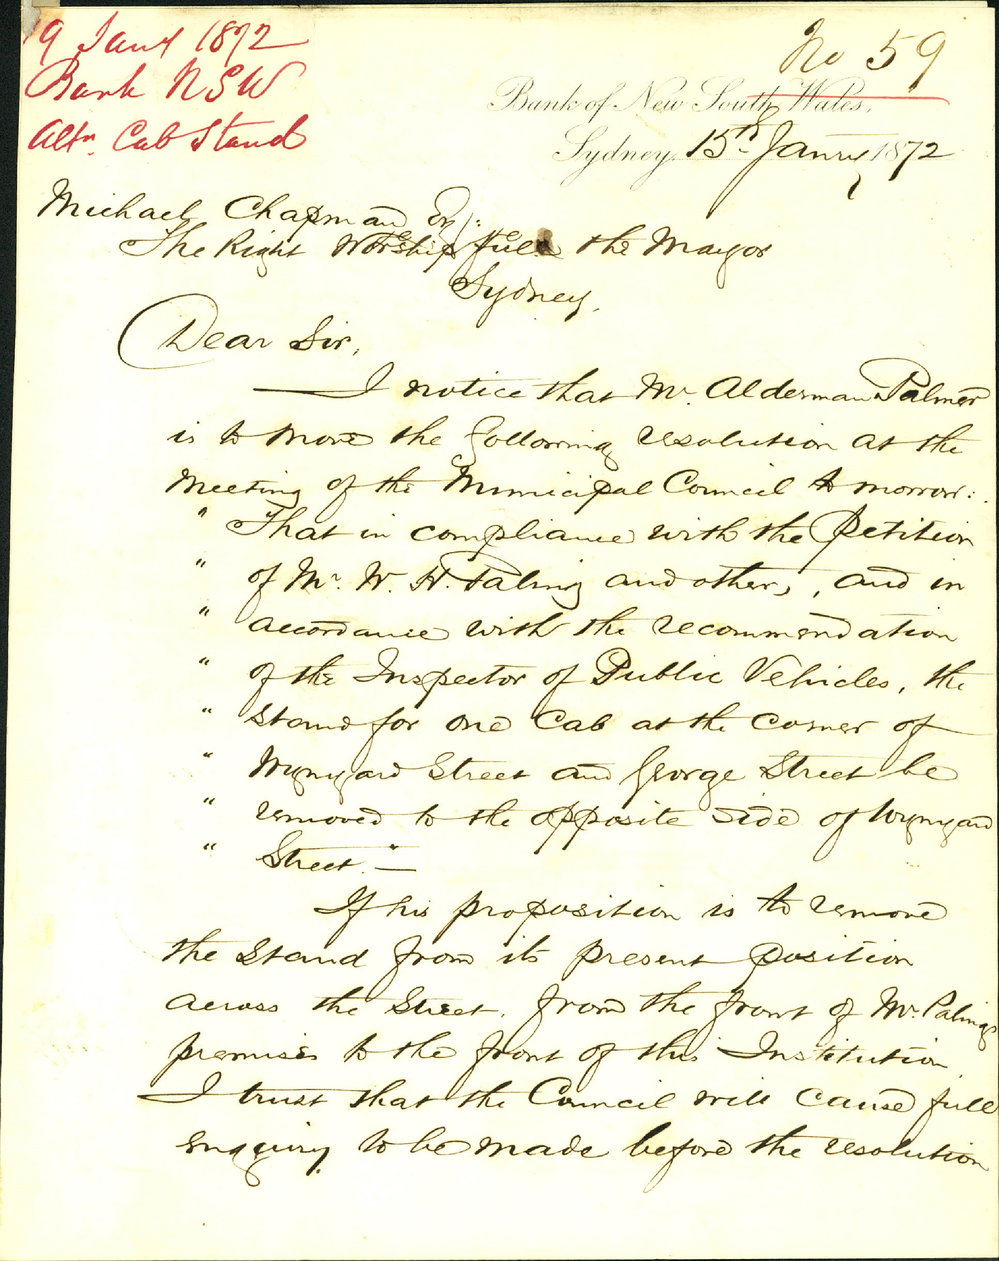 19 Jany 1872
Bank NSW
Altn. Cab Stand
No 59
Bank of New South Wales,
Sydney, 15th Janry 1872
Michael Chapman Esq:
The Right Worshipful the Mayor
Sydney.
Dear Sir,
I notice that Mr. Alderman Palmer
is to move the following resolution at the
Meeting of the Municipal Council to morrow:.
" That in compliance with the Petition
" of Mr. W. H. Paling and others, and in
" accordance with the recommendation
" of the Inspector of Public Vehicles, the
" Stand for one Cab at the corner of
" Wynyard Street and George Street be
" removed to the opposite side of Wynyard
" Street." —
If his proposition is to remove
the Stand from its present position
across the Street, from the front of Mr. Palings
premises to the front of this Institution,
I trust that the Council will cause full
enquiry to be made before the resolution